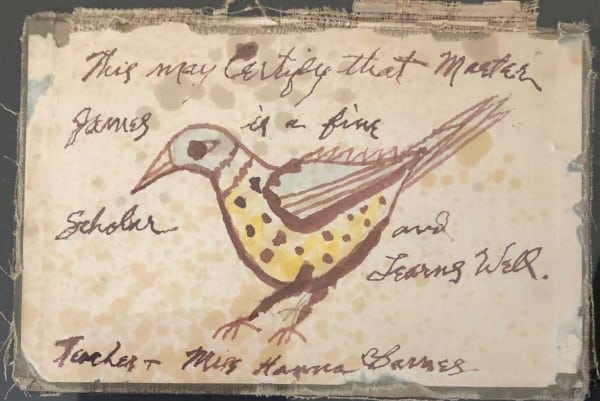 This may Certify that Master
James is a fine
Scholar and
Learns Well.
Teacher - Miss Hanna Barnes